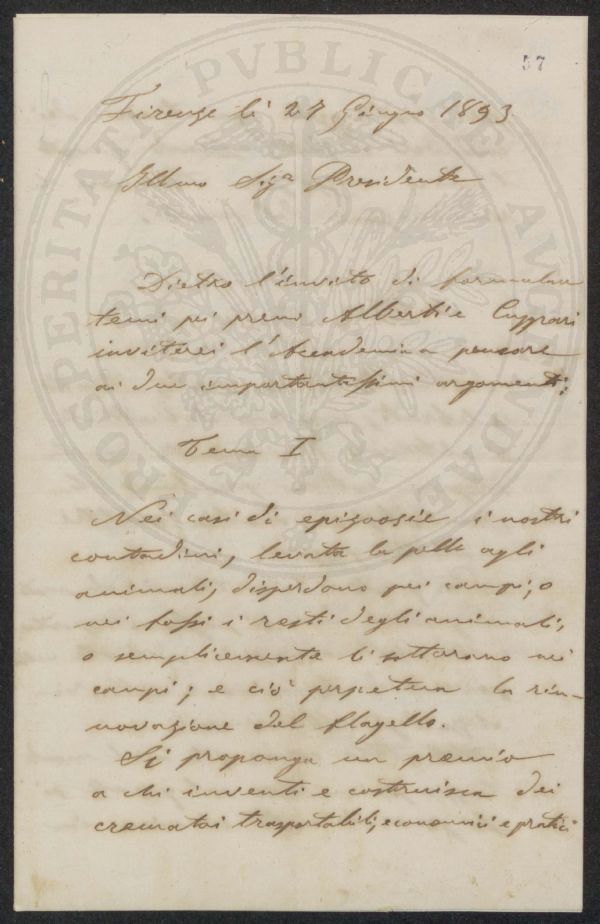 57
Firenze li 27 Giugno 1893
Illmo Sigr Presidente
Dietro l'invito di formulare
temi pei premi Alberti e Cuppari
inviterei l'Accademia a pensare
ai due importantissimi argomenti:
Tema I
Nei casi di epizoozie i nostri
contadini, levata la pelle agli
animali, disperdono pei campi, o
nei fossi i resti degli animali,
o semplicemente li sotterano nei
campi; e ciò perpetua la rin-
novazione del flagello.
Si proponga un premio
a chi inventi e costruisca dei
crematoi trasportabili, economici e pratici
PROSPERITATI PVBLICAE AVGENDAE